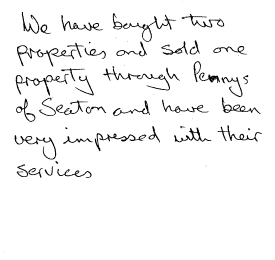 We have bought two
properties and sold one
property through Pennys
of Seaton and have been
very impressed with their
services